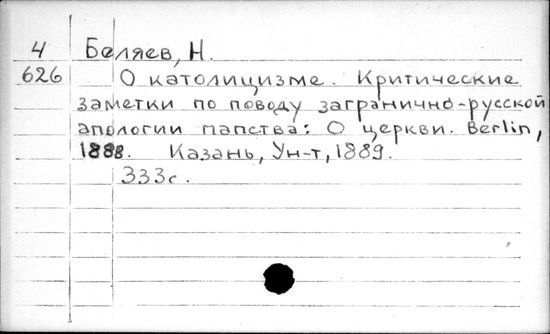 4 Беляев, Н.
626 О католицизме. Критические
заметки по поводу загранично-русской
апологии папства: О церкви. Berlin,
1888. Казань, Ун-т, 1889.
333с.